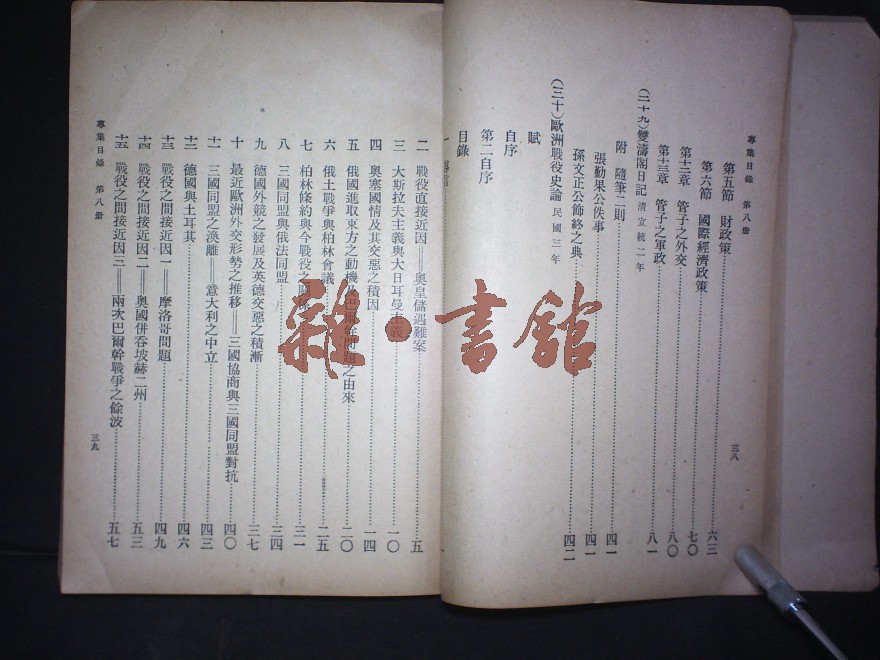 專集目錄 第八册
第五節 財政策 六三
第六節 國際經濟政策 七〇
第十二章 管子之外交 八〇
第十三章 管子之軍政 八一
(二十九)雙濤閣日記 清宣統二年
附 隨筆二則 四一
張勤果公佚事 四一
孫文正公飾終之典 四二
(三十)歐洲戰役史論 民國三年
賦
自序
第二自序
目錄
三八
一
二 戰役直接近因——奧皇儲遇難案 五
三 大斯拉夫主義與大日耳曼主義 一〇
四 奧塞國情及其交惡之積因 一四
五 俄國進取東方之動機及巴爾幹問題之由來 二〇
六 俄土戰爭與柏林會議 二五
七 柏林條約與今戰役之關係 三一
八 三國同盟與俄法同盟 三四
九 德國外競之發展及英德交惡之積漸 三七
十 最近歐洲外交形勢之推移——三國協商與三國同盟對抗 四〇
十一 三國同盟之渙離——意大利之中立 四三
十二 德國與土耳其 四六
十三 戰役之間接近因一——摩洛哥問題 四九
十四 戰役之間接近因二——奧國併吞坡赫二州 五三
十五 戰役之間接近因三——兩次巴爾幹戰爭之餘波 五七
專集目錄 第八册
三九
雜·書館